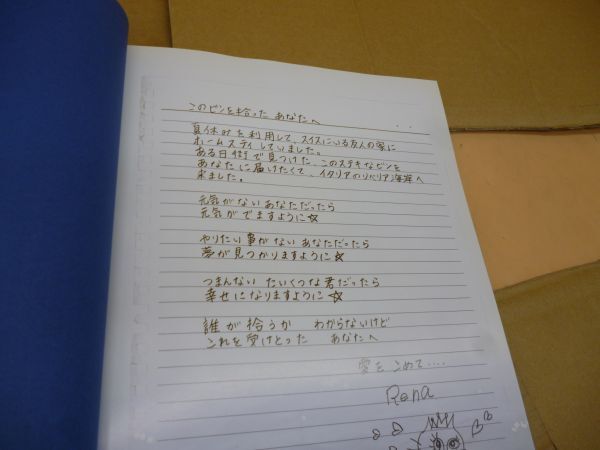 このビンを拾った あなたへ
夏休みを利用して、スイスにいる友人の家に
ホームステイしていました。
ある日街で見つけた、このステキなビンを
あなたに届けたくて、イタリアのリベリアン海岸へ
来ました。
元気がないあなただったら
元気がでますように☆
やりたい事がない あなただったら
夢が見つかりますように☆
つまんない たいくつな君だったら
幸せになりますように☆
誰が拾うか わからないけど
これを受けとった あなたへ
愛をこめて....
Rena